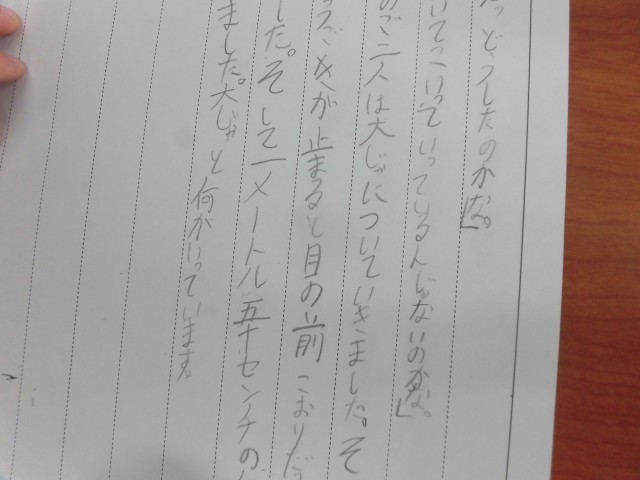 どうしたのかな。」
いてこいっていっているんじゃないのかな。」
のご二人は大じゃについていきました。そ
が止まると目の前こおりだ
した。そして一メートル五十センチの
ました。大じゃと何がいっています。